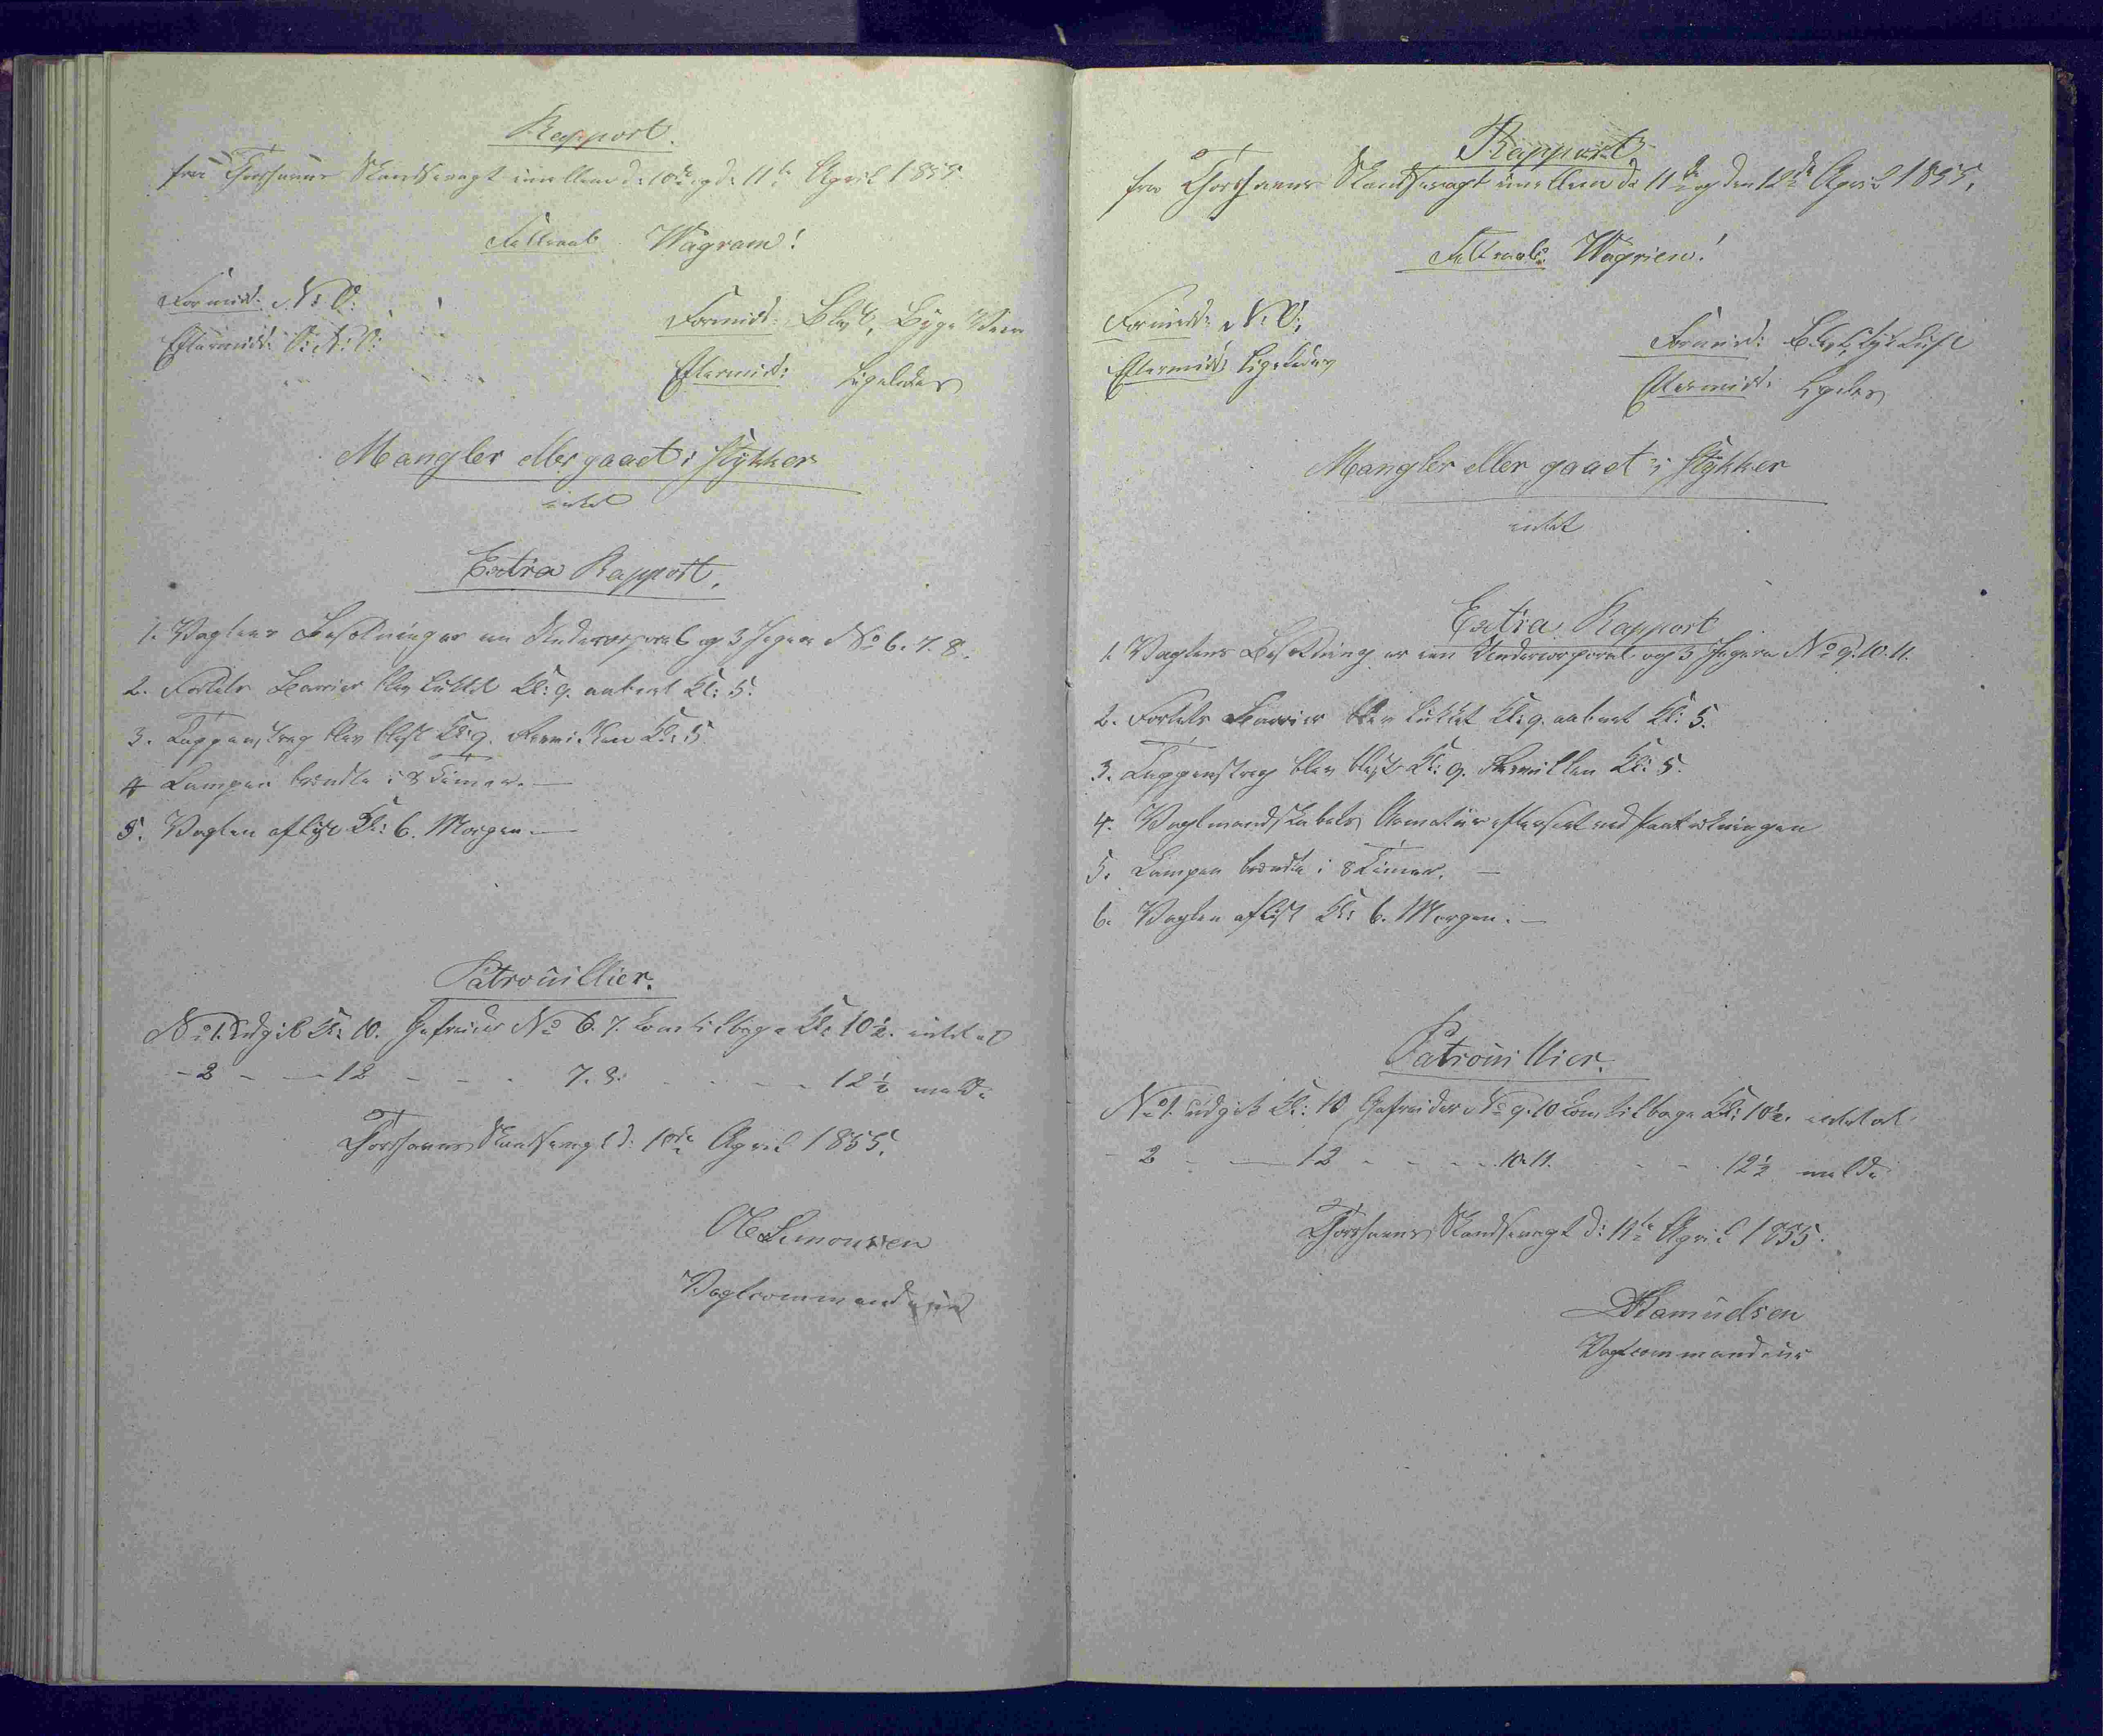 Rapport.
fra Thorshavns Skandsevagt imellem d: 10de og d: 11te April 1855
Feltraab Wagram!
Formidd: N: O:
Eftermidd: O: N: O:
Formidd: Blæst, Byge Veir
Eftermidd: ligeledes
Mangler eller gaaet i Stykker
intet
Extra Rapport.
1. Vagtens Besætning er en Undercorporal og 3 Jegere No 6. 7. 8.
2. Fortets Barrier blev lukket Kl: 9. aabnet Kl: 5.
3. Tappenstreg blev blæst Kl: 9. Revillen Kl: 5
4 Lampen brændte i 8 Timer. —
5. Vagten afløst Kl: 6. Morgen. —
Patrouillier.
No 1. Udgik Kl: 10. Gefreider No 6. 7. kom tilbage Kl: 10½. intet at
- 2 - - 12 - - - 7. 8. - - - - 12½ melde
Thorshavns Skandsevagt d: 10de April 1855.
O Simonsen
Vagtcommandeur
Rapport
fra Thorshavns Skandsevagt imellem d: 11te og den 12te April 1855.
Feltraab: Wagrien!
Formidd: N: O:
Eftermidd: ligeledes
Formidd: Blæst, tyk Luft
Eftermidd: ligeledes
Mangler eller gaaet i Stykker
intet
Extra Rapport
1. Vagtens Besætning er een Undercorporal og 3 Jegere No 9. 10. 11.
2. Fortets Barrier blev lukket Kl: 9. aabnet Kl: 5.
3. Tappenstreg blev blæst Kl: 9. Revillen Kl: 5.
4. Vagtmandskabets Armatur efterseet ved Paatrædningen
5. Lampen brændte i 8 Timer. —
6. Vagten afløst Kl: 6. Morgen. —
Patrouillier.
No 1. udgik Kl: 10 Gefreider No 9. 10 kom tilbage Kl: 10½. intet at
- 2 - - 12 - - - 10. 11. - - 12½ melde
Thorshavns Skandsevagt d: 11te April 1855.
Samuelsen
Vagtcommandeur